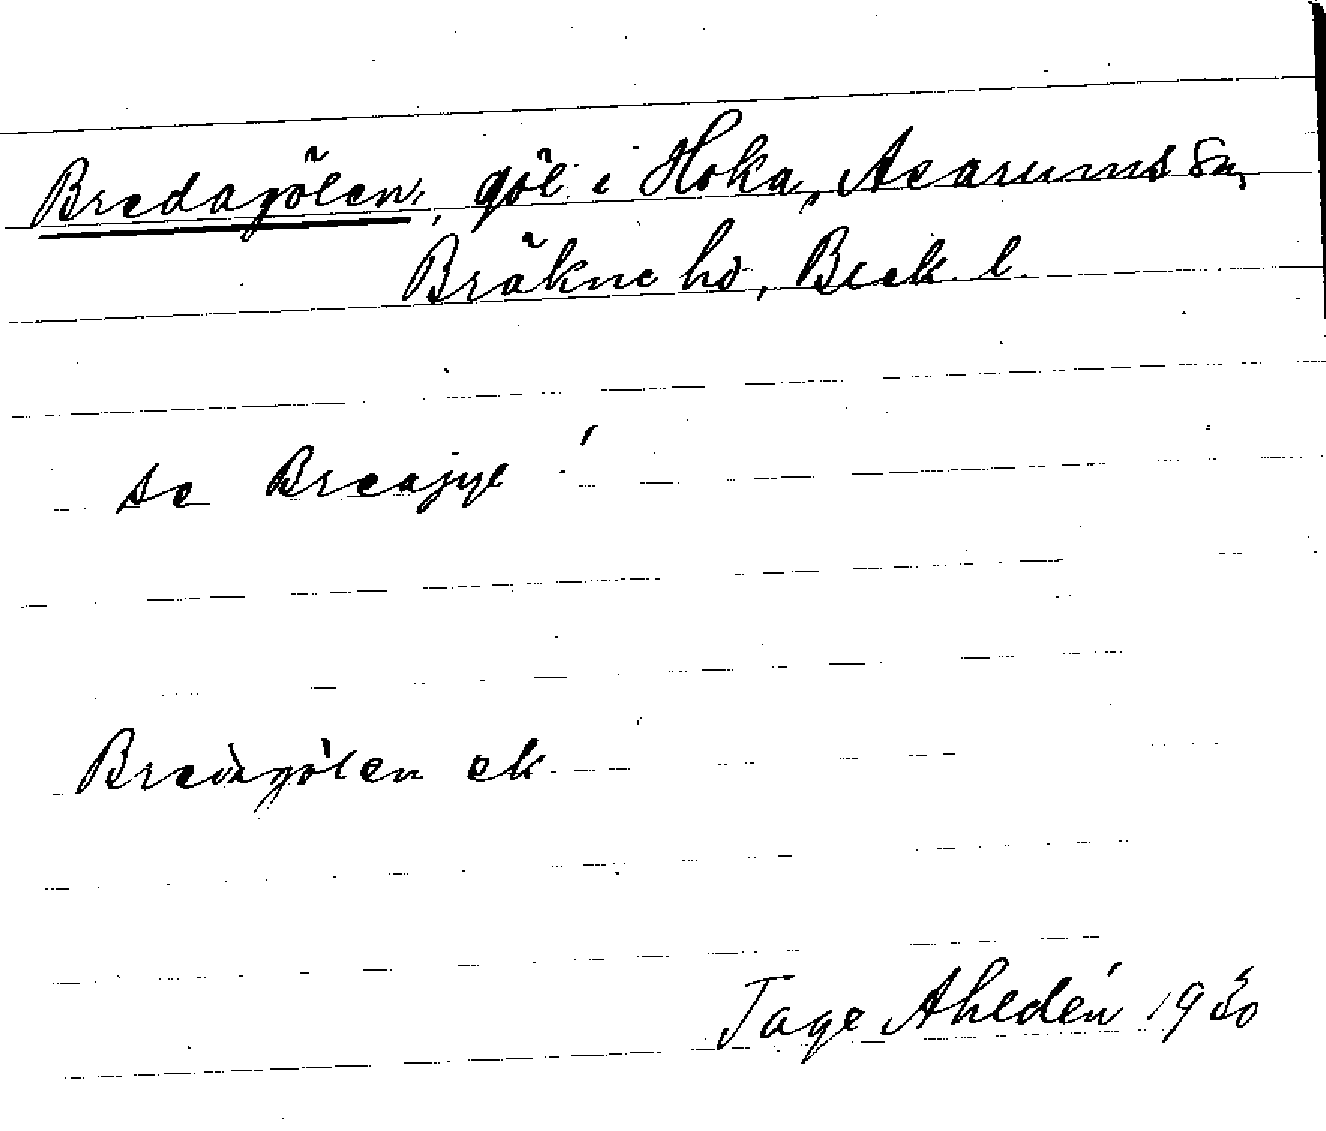 Bredagölen, göl i Hoka, Asarums sn,
Bräkne hd, Blek. l.
se Breagyl
Bredagölen ek
Tage Ahldén 1930